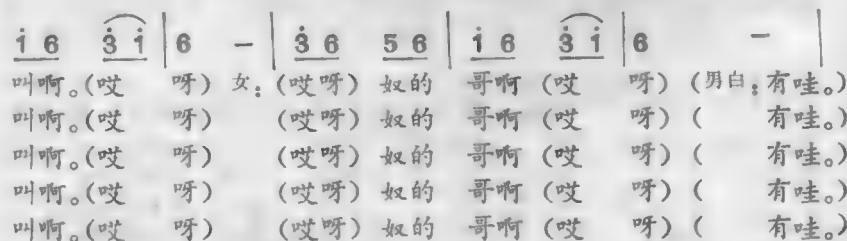 i 6 3̇ i | 6 － | 3̇ 6 5 6 | i 6 3̇ i | 6 － |
叫啊。(哎 呀) 女:(哎呀) 奴的 哥啊 (哎 呀) (男白:有哇。)
叫啊。(哎 呀) (哎呀) 奴的 哥啊 (哎 呀) ( 有哇。)
叫啊。(哎 呀) (哎呀) 奴的 哥啊 (哎 呀) ( 有哇。)
叫啊。(哎 呀) (哎呀) 奴的 哥啊 (哎 呀) ( 有哇。)
叫啊。(哎 呀) (哎呀) 奴的 哥啊 (哎 呀) ( 有哇。)